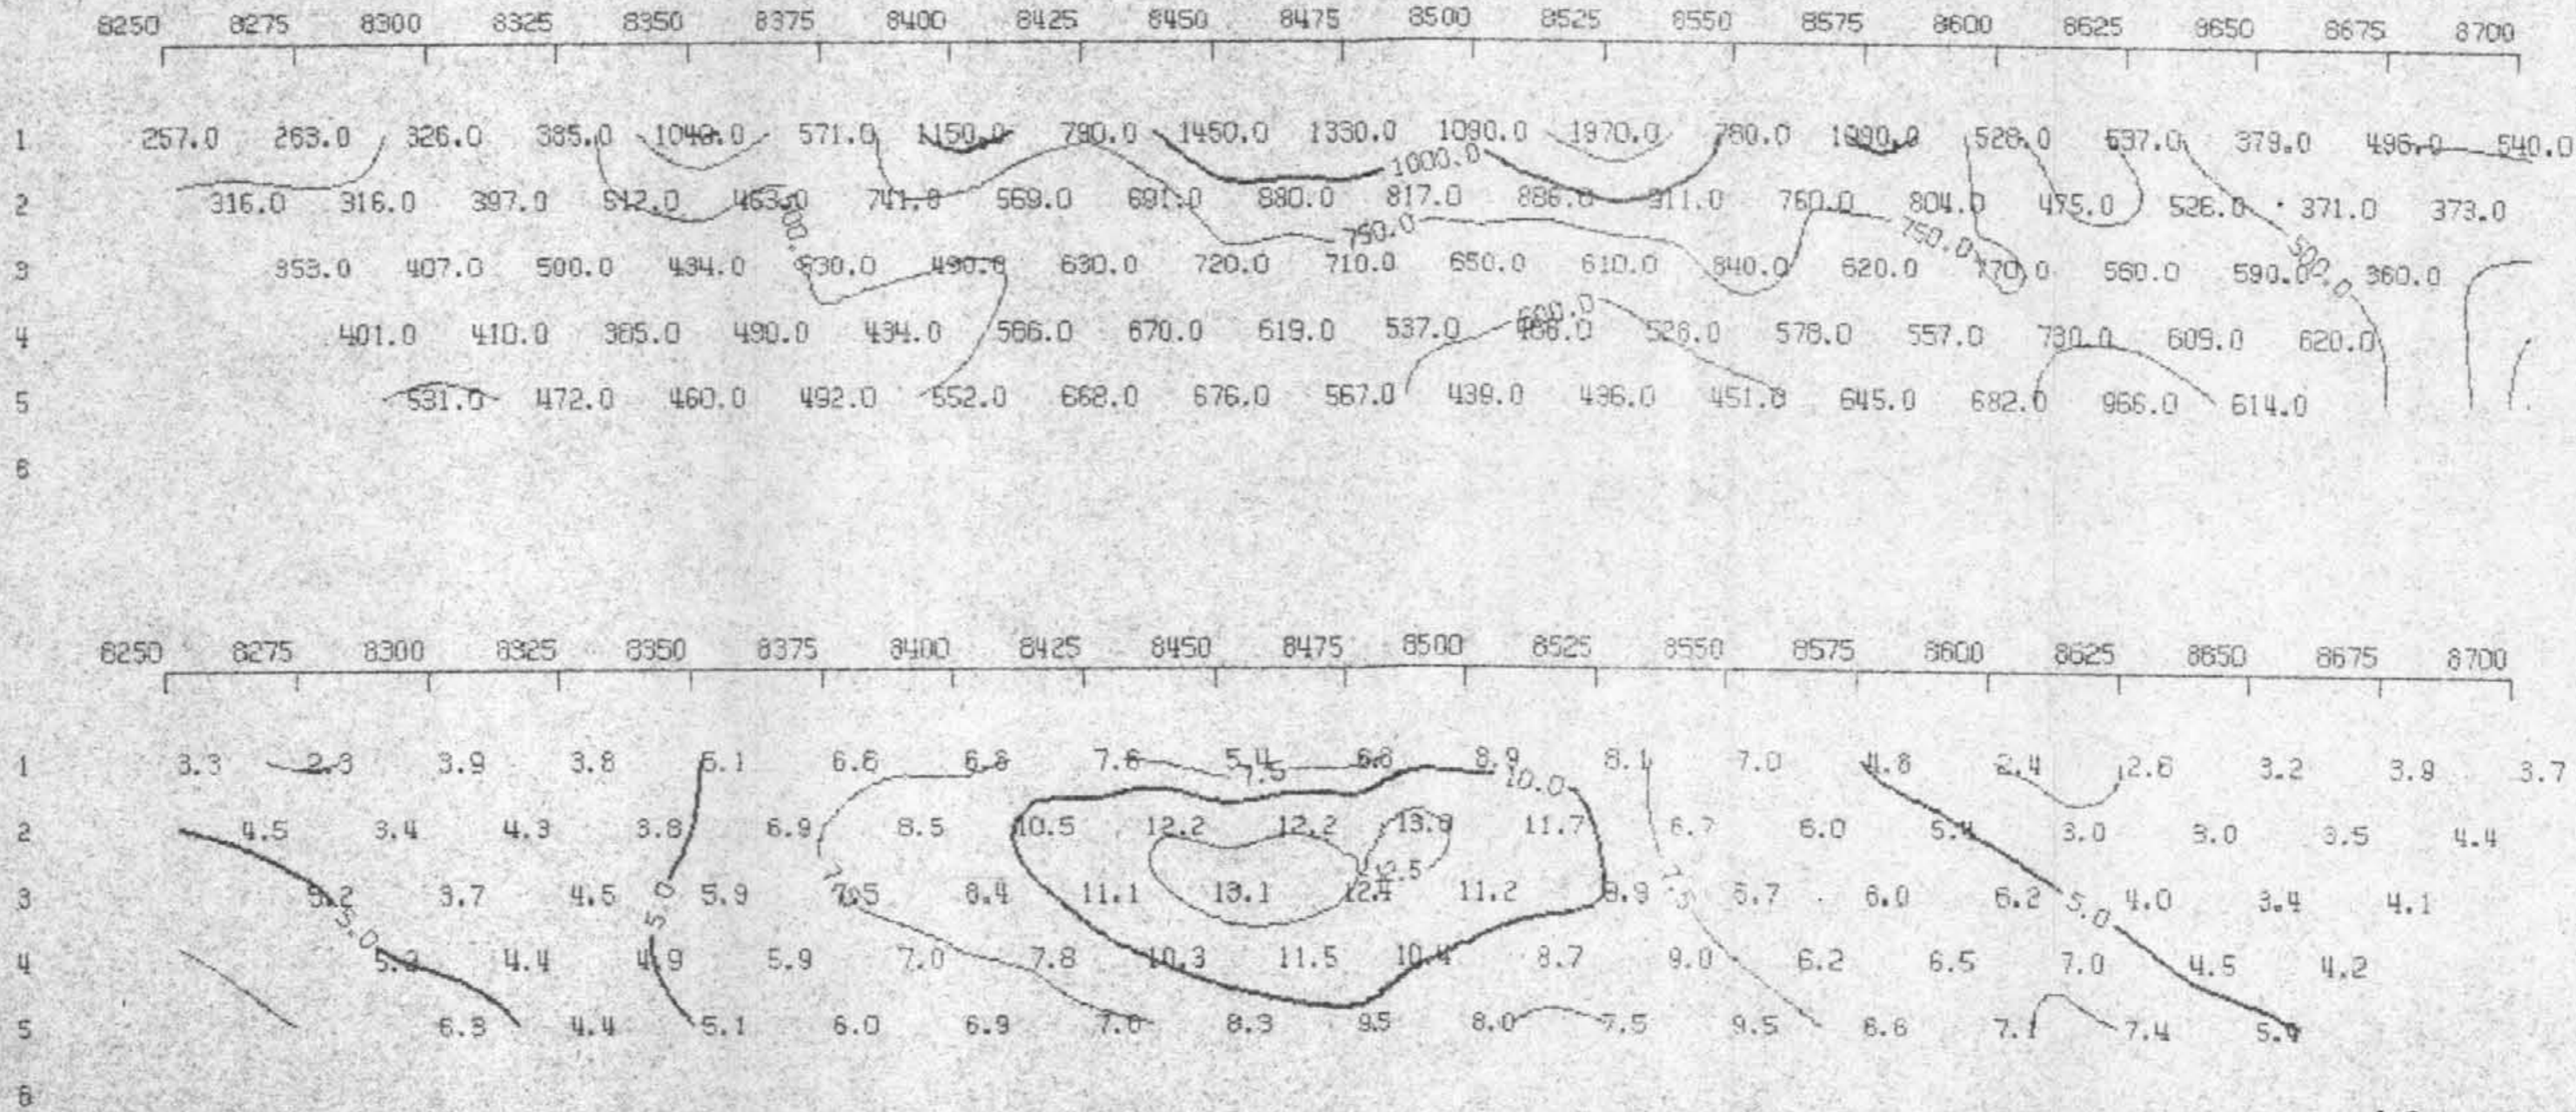 8250 8275 8300 8325 8350 8375 8400 8425 8450 8475 8500 8525 8550 8575 8600 8625 8650 8675 8700
1 257.0 263.0 326.0 385.0 1040.0 571.0 1150.0 790.0 1450.0 1330.0 1090.0 1970.0 780.0 1090.0 528.0 537.0 379.0 496.0 540.0
1000.0
2 316.0 316.0 397.0 512.0 463.0 741.0 569.0 691.0 880.0 817.0 886.0 911.0 760.0 804.0 475.0 526.0 371.0 373.0
500.0 750.0 750.0 500.0
3 353.0 407.0 500.0 434.0 530.0 490.0 690.0 720.0 710.0 650.0 610.0 840.0 620.0 770.0 560.0 590.0 360.0
4 401.0 410.0 385.0 490.0 434.0 566.0 670.0 619.0 537.0 526.0 578.0 557.0 730.0 609.0 620.0
5 531.0 472.0 460.0 492.0 552.0 668.0 676.0 567.0 439.0 436.0 451.0 645.0 682.0 966.0 614.0
6
8250 8275 8300 8325 8350 8375 8400 8425 8450 8475 8500 8525 8550 8575 8600 8625 8650 8675 8700
1 3.3 2.3 3.9 3.8 5.1 6.6 6.8 7.6 5.4 6.8 8.9 8.1 7.0 4.8 2.4 2.6 3.2 3.9 3.7
7.5 10.0
2 4.5 3.4 4.3 3.8 6.9 8.5 10.5 12.2 12.2 13.6 11.7 6.7 6.0 5.4 3.0 3.0 3.5 4.4
12.5
3 5.2 3.7 4.5 5.9 7.5 8.4 11.1 13.1 12.4 11.2 9.9 6.7 6.0 6.2 4.0 3.4 4.1
5.0 5.0 7.5 5.0
4 5.3 4.4 4.9 5.9 7.0 7.8 10.3 11.5 10.4 8.7 9.0 6.2 6.5 7.0 4.5 4.2
5 6.3 4.4 5.1 6.0 6.9 7.6 8.3 9.5 8.0 7.5 9.5 8.6 7.1 7.4 5.4
6